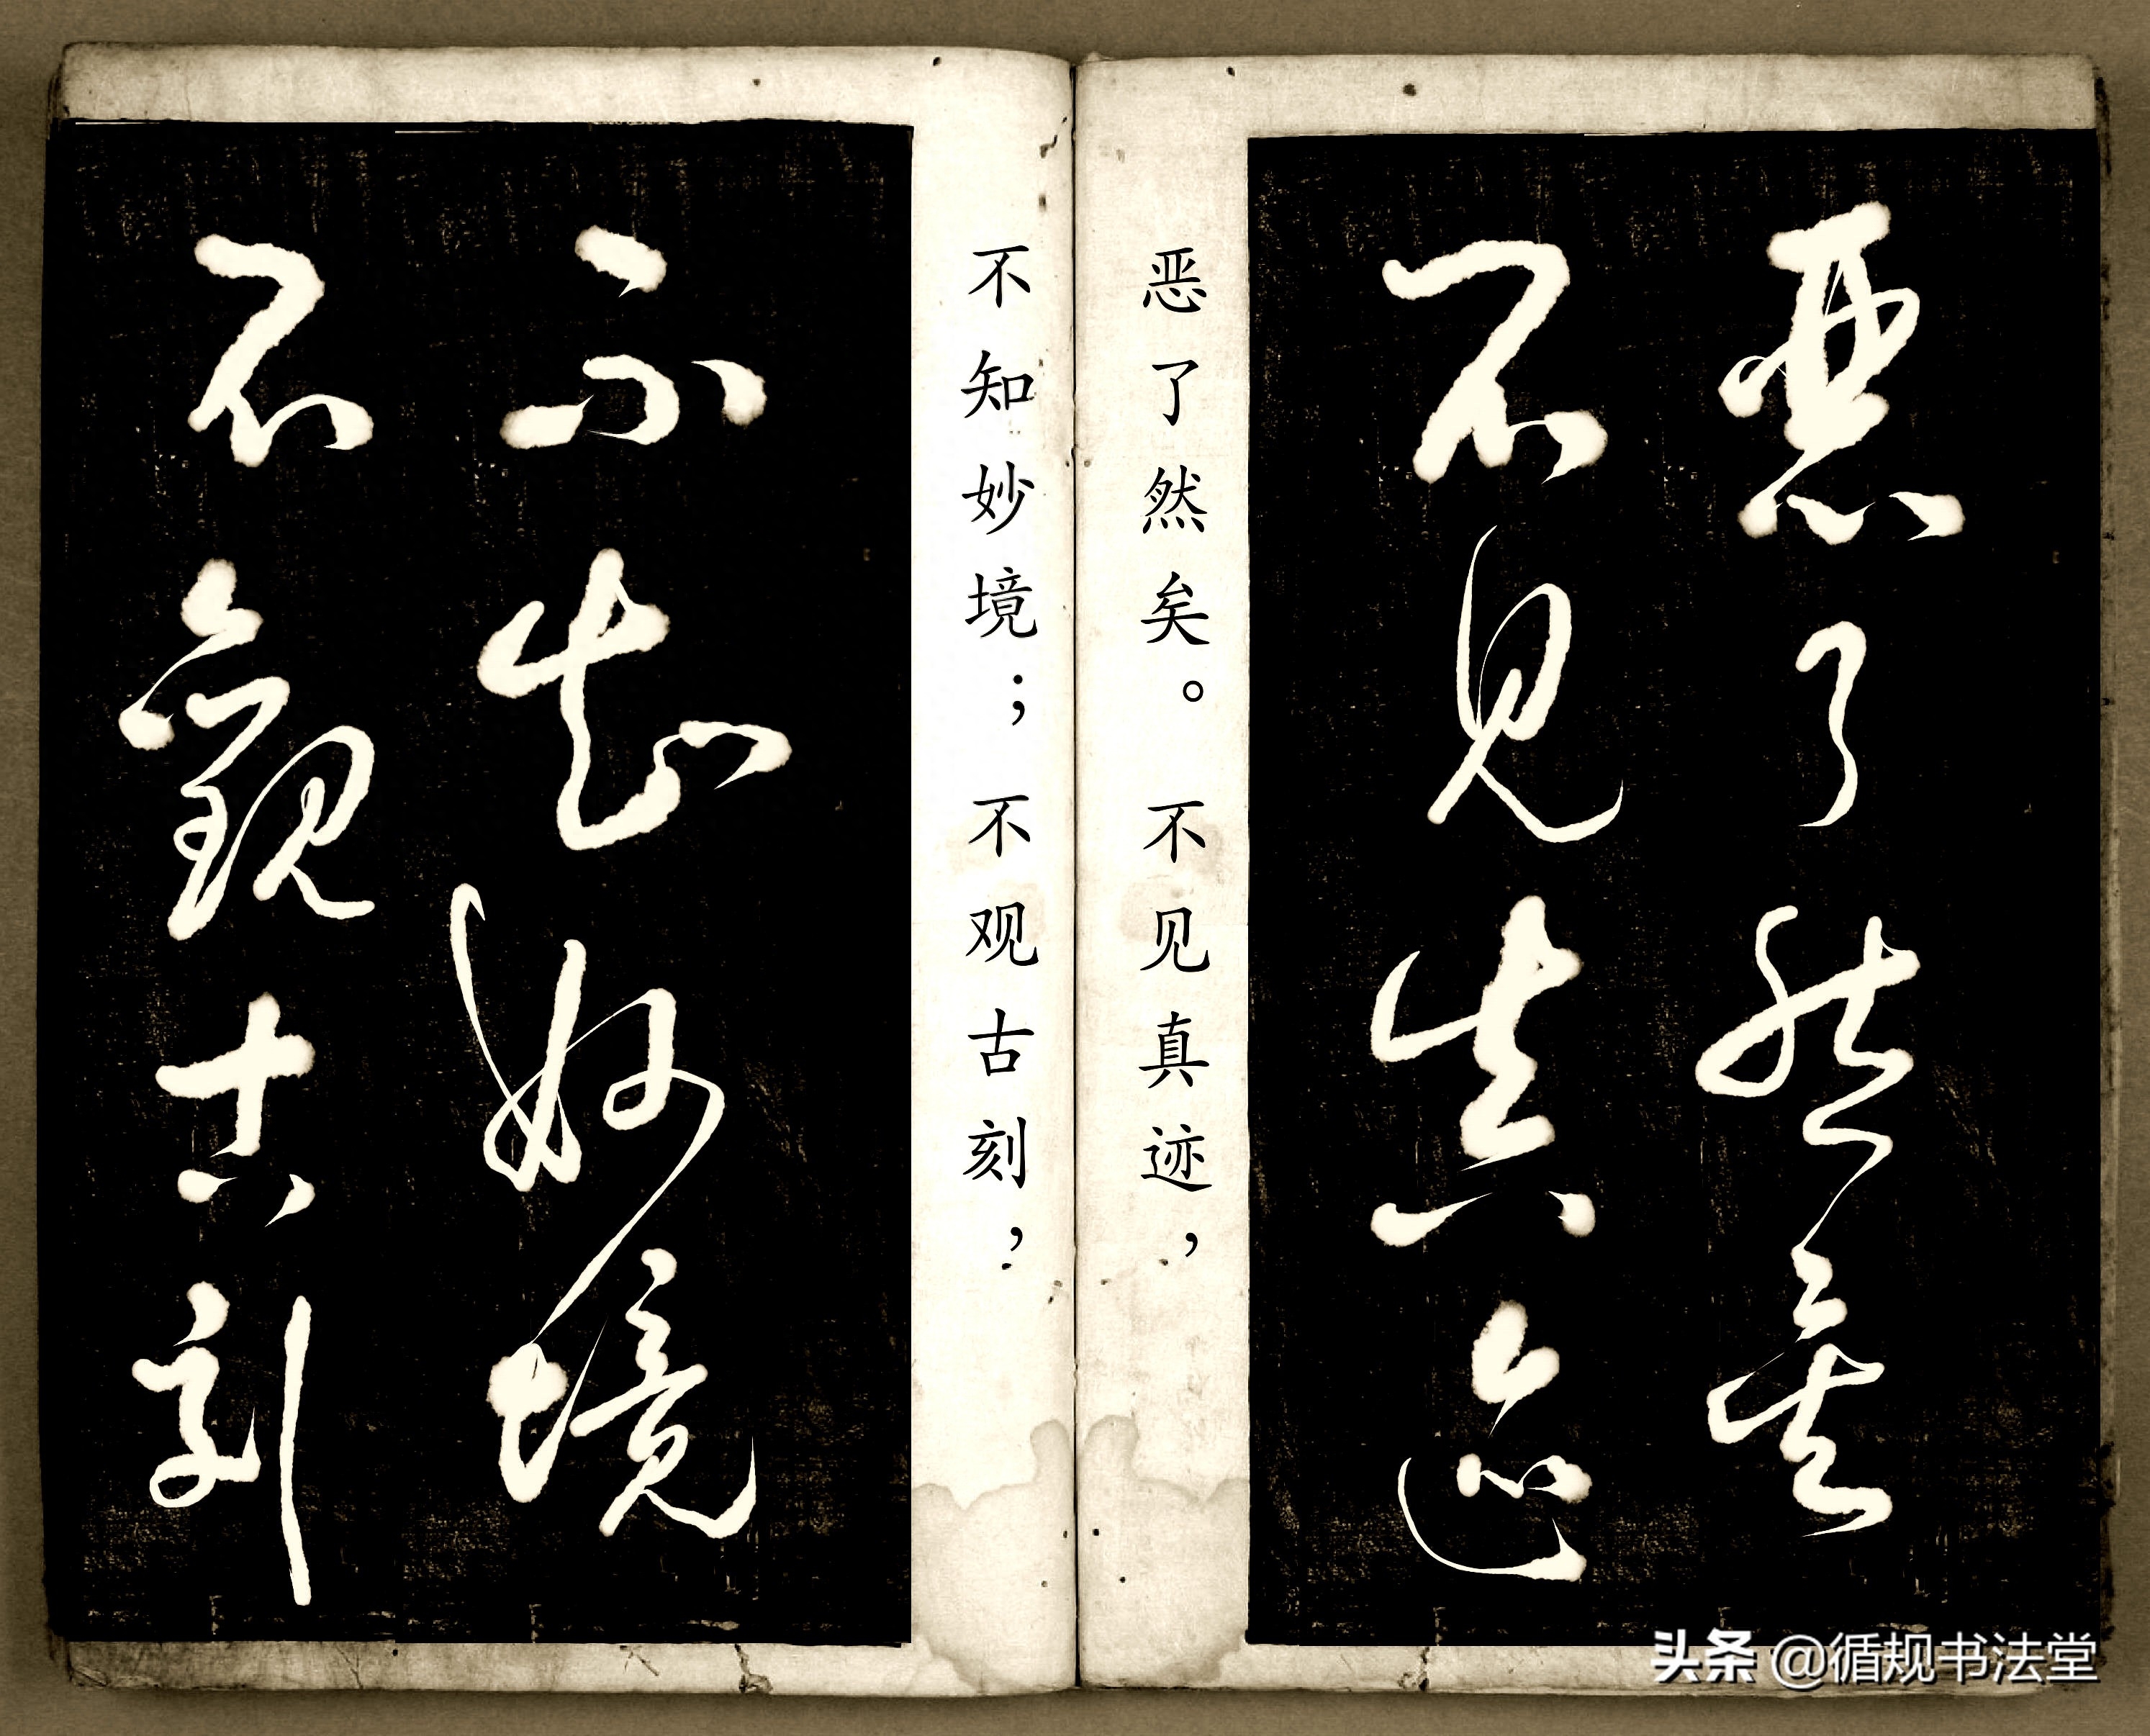 惡了然矣
不見真迹
恶了然矣。不见真迹，
不知妙境；不观古刻，
不知妙境
不觀古刻
头条 @循规书法堂